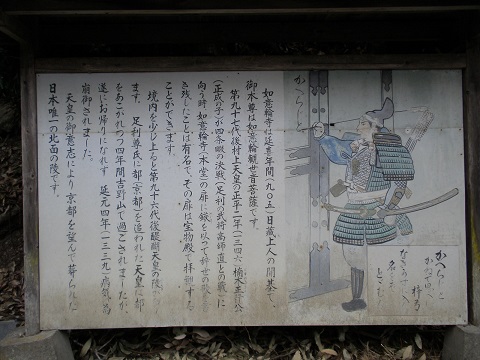 如意輪寺は延喜年間(九〇五)日蔵上人の開基で、
御本尊は如意輪観世音菩薩です。
第九十七代後村上天皇の正平二年(一三四六)楠木正行公
(正成の子)が四条畷の決戦(足利の武将高師直との戦)に
向う時如意輪寺(本堂)の扉に鏃を以って辞世の歌を
き残したことは有名で、その扉は宝物殿で拝観する
ことができます。
境内を少し上ると第九十六代後醍醐天皇の陵があり
ます。足利尊氏に都(京都)を追われた天皇は都
をあこがれつつ四年間吉野山で過ごされましたが、
遂にお帰りになれず 延元四年(一三三九)病気の為
崩御されました。
天皇の御意志により京都を望んで葬られた
日本唯一の北面の陵です。
かへらじ
かへらじと
かねて思へば
梓弓
なき
名を
とどむ